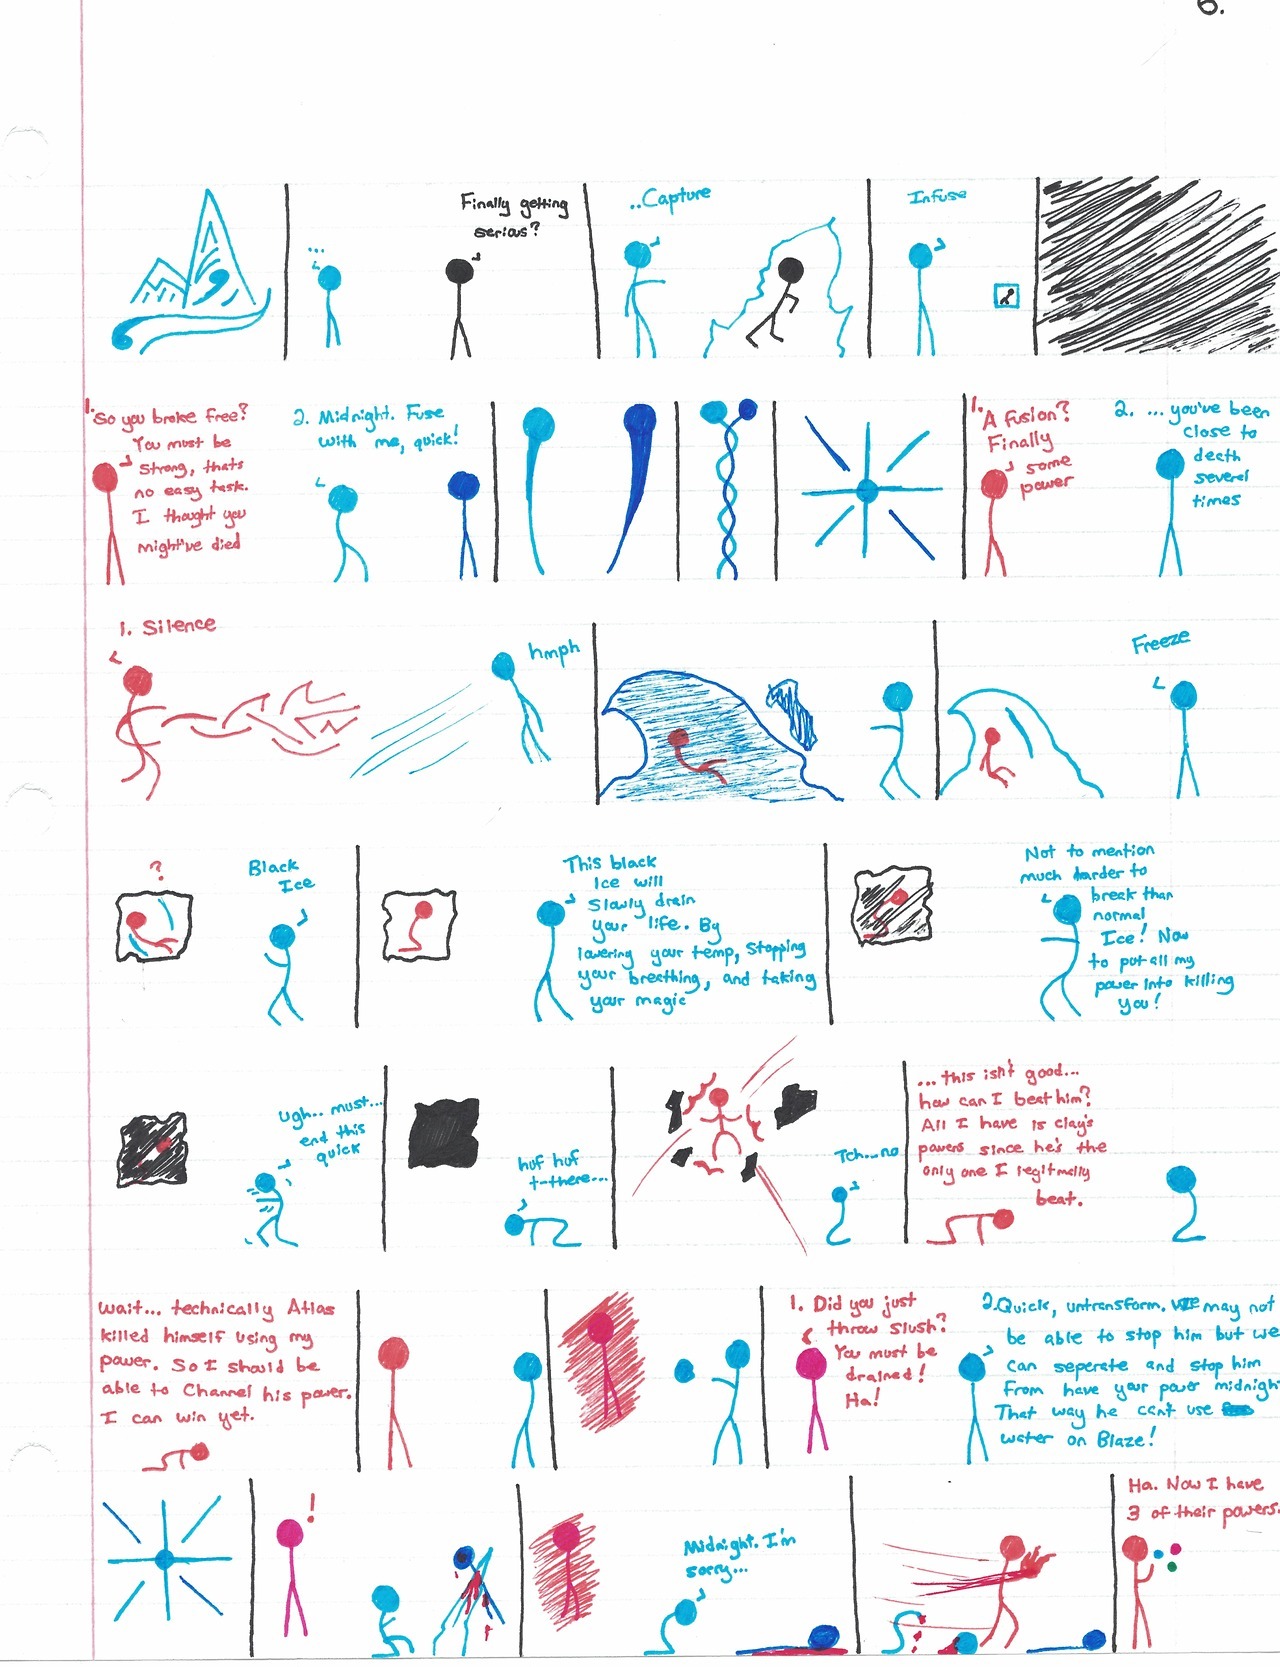 6.
Finally getting
serious?
...
..Capture
Infuse
1. So you broke free?
You must be
Strong, thats
no easy task.
I thought you
might've died
2. Midnight. Fuse
with me, quick!
1. A fusion?
Finally
some
power
2. ... you've been
close to
death
several
times
1. Silence
hmph
Freeze
?
Black
Ice
This black
Ice will
Slowly drain
your life. By
lowering your temp, stopping
your breathing, and taking
your magic
Not to mention
much harder to
break than
normal
Ice! Now
to put all my
power into killing
you!
ugh.. must...
end this
quick
huf huf
t-there...
Tch...no
...this isn't good...
how can I beat him?
All I have is clay's
powers since he's the
only one I legitmally
beat.
wait... technically Atlas
killed himself using my
power. So I should be
able to Channel his power.
I can win yet.
1. Did you just
throw slush?
You must be
drained!
Ha!
2. Quick, untransform. We may not
be able to stop him but we
can seperate and stop him
From have your power midnight
That way he can't use
water on Blaze!
!
Midnight. I'm
sorry...
Ha. Now I have
3 of their powers.